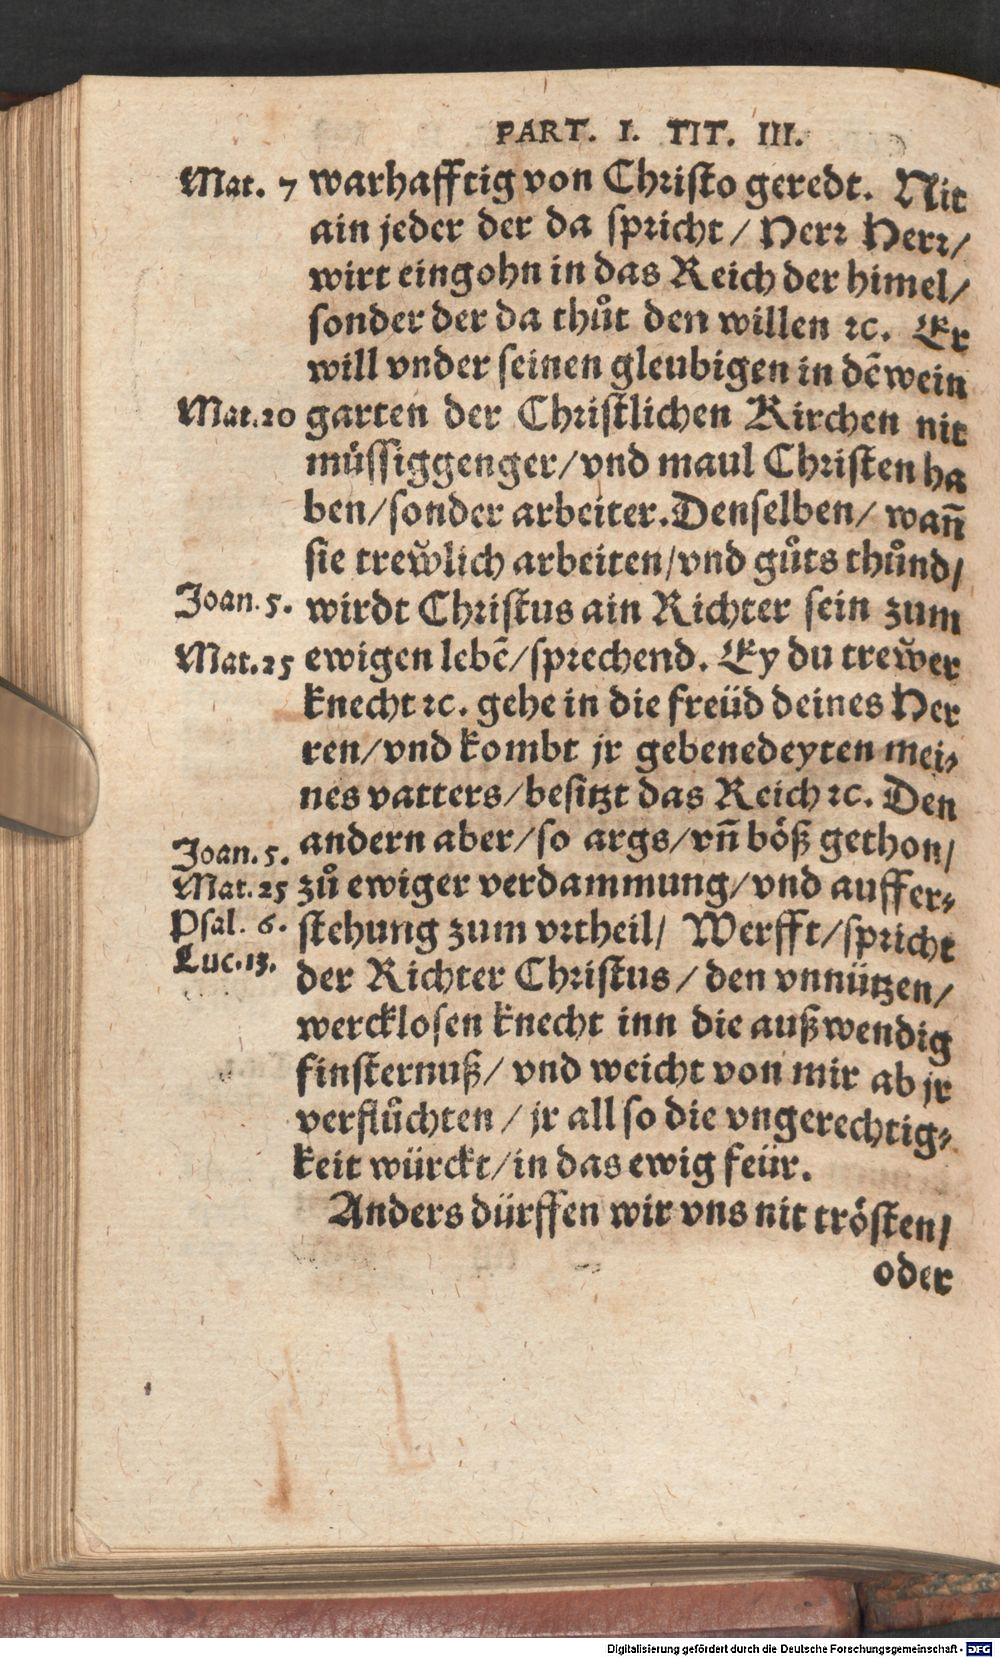 PART. I. TIT. III.
Mat. 7 warhafftig von Christo geredt. Nit
ain jeder der da spricht / Herr Herr/
wirt eingohn in das Reich der himel/
sonder der da thůt den willen ꝛc. Er
will vnder seinen gleubigen in dē wein
Mat. 20 garten der Christlichen Kirchen nit
müssiggenger/vnd maul Christen ha
ben/sonder arbeiter. Denselben/ wañ
sie trew̌lich arbeiten/vnd gůts thůnd/
Joan. 5. wirdt Christus ain Richter sein zum
Mat. 25 ewigen lebē/sprechend. Ey du trew̌er
knecht ꝛc. gehe in die freüd deines Her
ren/vnd kombt jr gebenedeyten mei⸗
nes vatters/besitzt das Reich ꝛc. Den
Joan. 5. andern aber/so args/vñ böß gethon/
Mat. 25 zů ewiger verdammung/vnd auffer⸗
Psal. 6. stehung zum vrtheil/ Werfft/spricht
Luc. 13. der Richter Christus / den vnnützen/
wercklosen knecht inn die außwendig
finsternuß/ vnd weicht von mir ab jr
verflůchten / jr all so die vngerechtig⸗
keit würckt/in das ewig feür.
Anders dürffen wir vns nit trösten/
oder
Digitalisierung gefördert durch die Deutsche Forschungsgemeinschaft - DFG